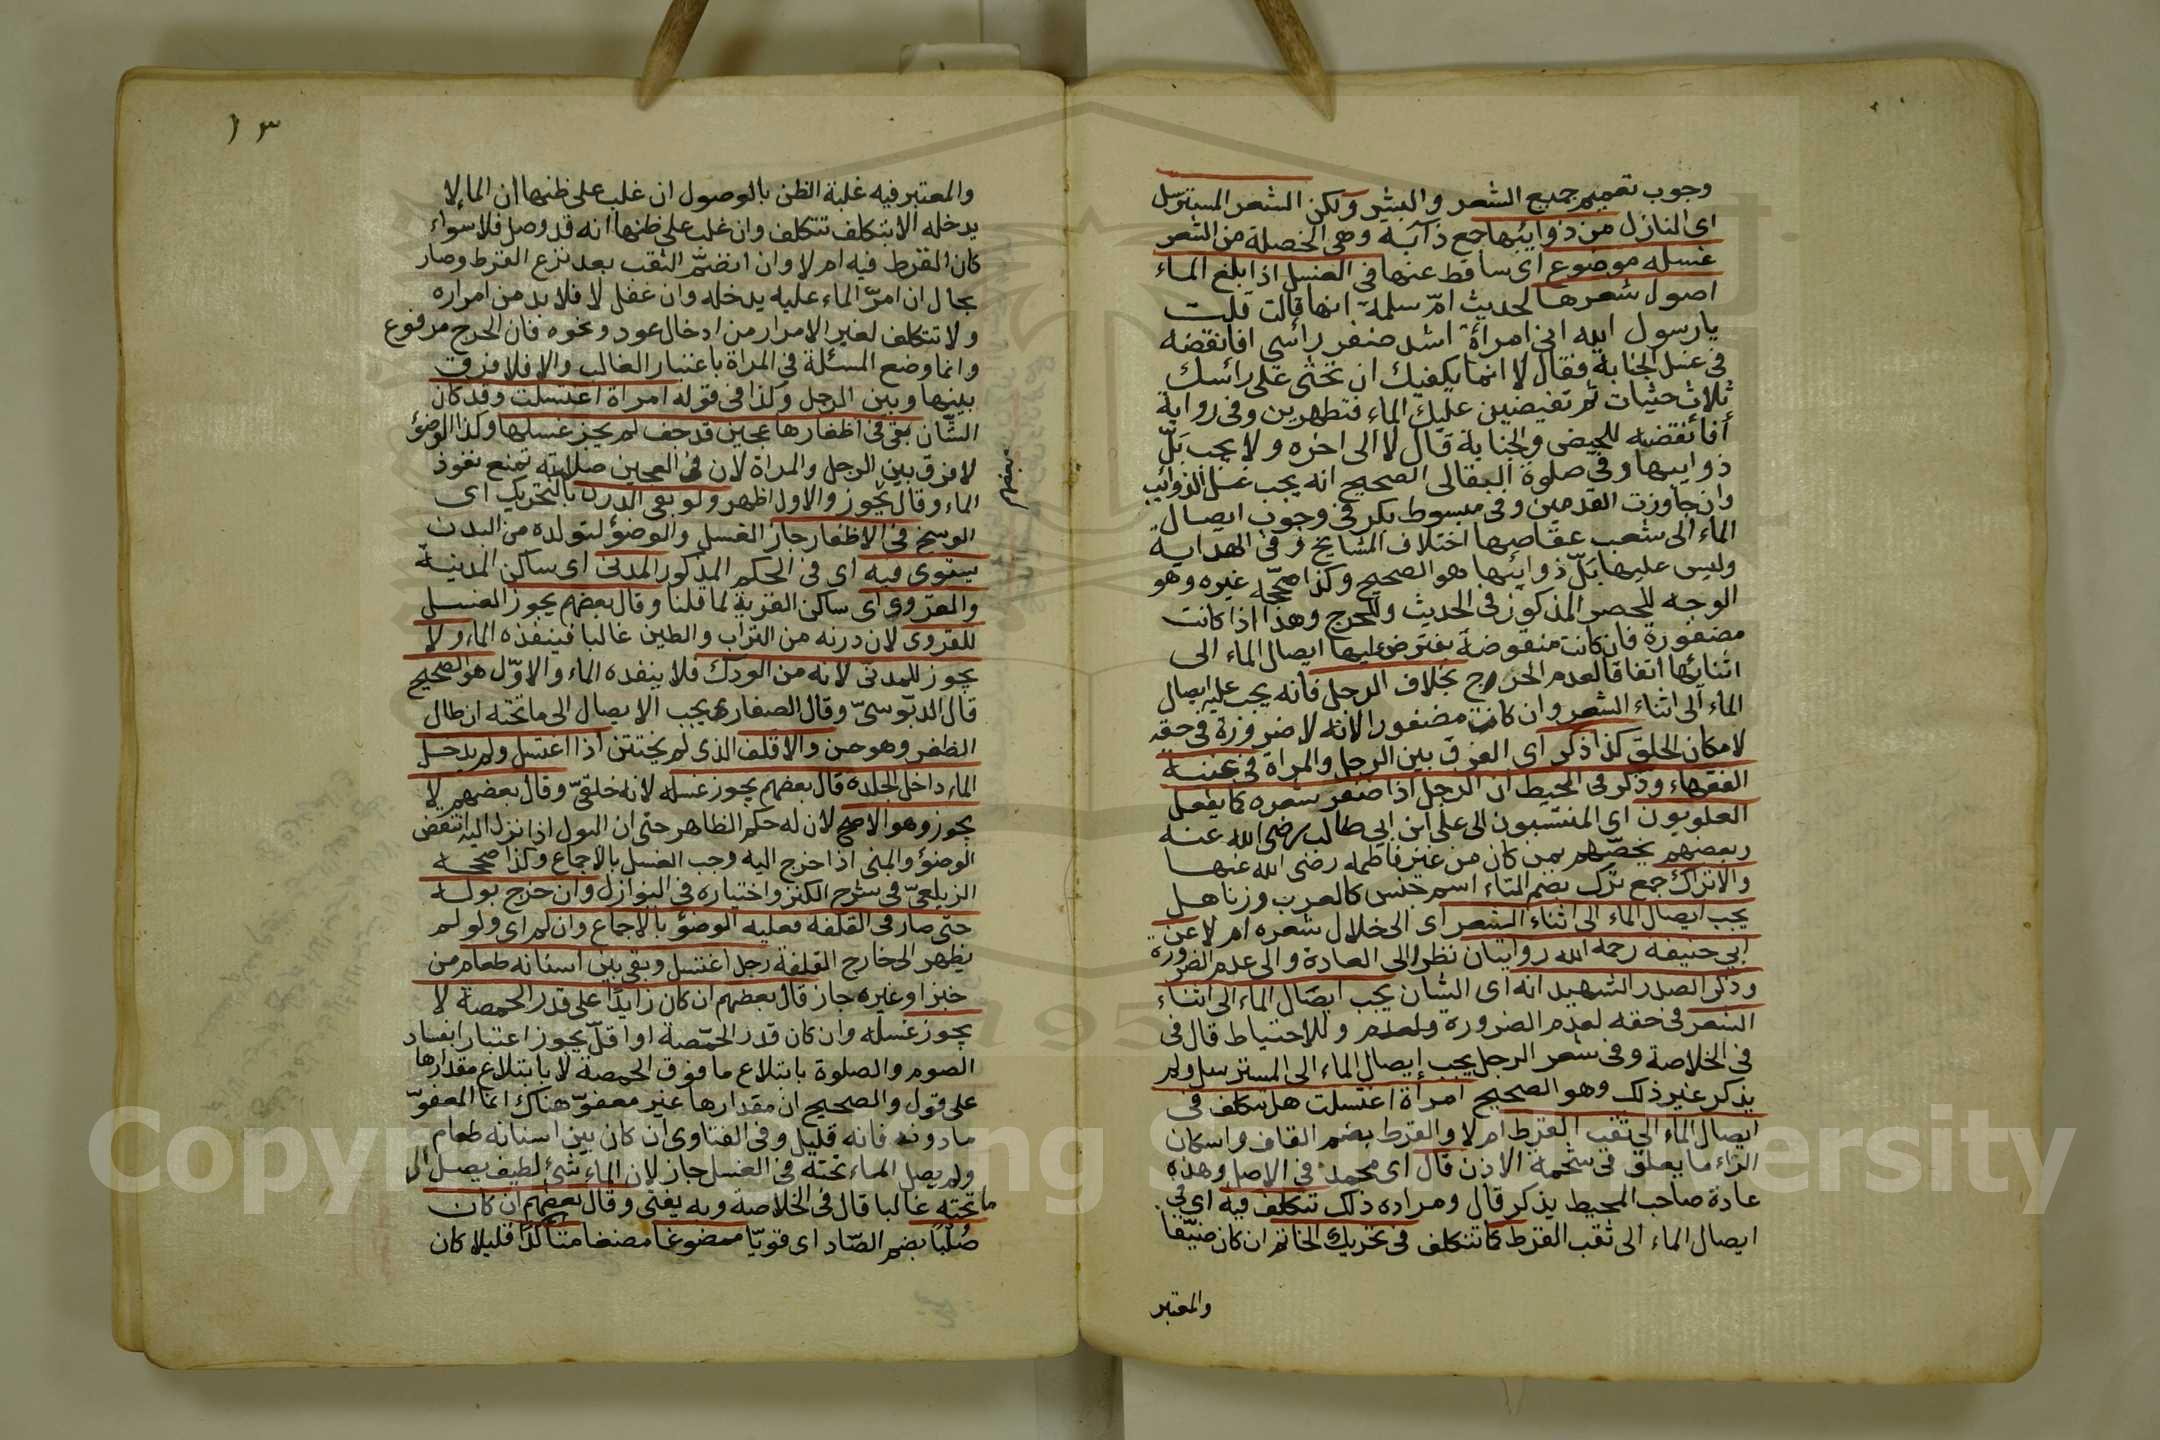 وجوب تعميم جميع الشعر والبشر ولكن الشعر المسترسل
اى النازل من ذوايبها جمع ذآبة وهى الخصلة من الشعر
غسله موضوع اى ساقط عنها فى الغسل اذا بلغ الماء
اصول شعرها لحديث امّ سلمة انها قالت قلت
يا رسول الله انى امرأة اشد ضفر رائسي افانقضه
فى غسل الجنابة فقال لا انما يكفيك ان تحثى على رائسك
ثلاث حثيات ثم تفيضين عليك الماء فتطهرين وفى رواية
أفأنقضه للحيض والجنابة قال لا الى اخره ولا يجب بلّ
ذوايبها وفى صلوة البقالى الصحيح انه يجب غسل الذوائب
وان جاوزت القدمين وفى مبسوط بكر فى وجوب ايصال
الماء الى شعب عقاصها اختلاف المشايخ وفى الهداية
وليس عليها بلّ ذوائبها هو الصحيح وكذا صححه غيره وهو
الوجه للحصر المذكور فى الحديث وللحرج وهذا اذا كانت
مضفورة فان كانت منقوضة يفترض عليها ايصال الماء الى
اثنائها اتفاقا لعدم الحرج بخلاف الرجل فانه يجب عليه ايصال
الماء الى اثناء الشعر وان كانت مضفورا لانه لا ضرورة فى حقه
لامكان الحلق كذا ذكر اى الفرق بين الرجل والمراة فى غنية
الفقهاء وذكر فى المحيط ان الرجل اذا ضفر شعره كما يفعل
العلويون اى المنتسبون الى على ابن ابي طالب رضى الله عنه
وبعضهم يخصّهم بمن كان من غير فاطمه رضى الله عنها
والاتراك جمع ترك بضم التاء اسم جنس كالعرب وزنا هل
يجب ايصال الماء الى اثناء الشعر اى الى خلال شعره ام لا عن
ابي حنيفه رحمه الله روايتان نظرا الى العادة والى عدم الضرورة
وذكر الصدر الشهيد انه اى الشان يجب ايصال الماء الى اثناء
الشعر فى حقه لعدم الضرورة ولعدم وللاحتياط قال فى
فى الخلاصة وفى شعر الرجل يجب إيصال الماء الى المسترسل ولم
يذكر غير ذلك وهو الصحيح امرأة اغتسلت هل تتكلف فى
ايصال الماء الى ثقب القرط ام لا والقرط بضم القاف واسكان
الراء ما يعلق فى شحمة الاذن قال اى محمد فى الاصل وهذه
عادة صاحب المحيط يذكر قال ومراده ذلك تتكلف فيه اى فى
ايصال الماء الى ثقب القرط كما تتكلف فى تحريك الخاتم ان كان ضيّقا
والمعتبر
١٣
والمعتبر فيه غلبة الظن بالوصول ان غلب على ظنها ان الماء لا
يدخله الا بتكلف تتكلف وان غلب على ظنها انه قد وصل فلا سواء
كان القرط فيه ام لا وان انضمّ الثقب بعد نزع القرط وصار
بحال ان امرّ الماء عليه يدخله وان غفل لا فلا بد من امراره
ولا تتكلف لغير الامرار من ادخال عود ونحوه فان الحرج مرفوع
وانما وضع المسئلة فى المراة باعتبار الغالب والا فلا فرق
بينها وبين الرجل وكذا فى قوله امراة اغتسلت وقد كان
الشأن بقى فى اظفارها عجين قد جف لم يجز غسلها وكذا الوضؤ
لا فرق بين الرجل والمراة لان فى العجين صلابة تمنع نفوذ
الماء وقال يجوز والاول اظهر ولو بقى الدرن بالتحريك اى
بعضهم
الوسخ فى الاظفار جاز الغسل والوضؤ لتولده من البدن
يستوى فيه اى فى الحكم المذكور المدنى اى ساكن المدنية
والقروى اى ساكن القرية لما قلنا وقال بعضهم يجوز الغسل
للقروى لان درنه من التراب والطين غالبا فينفذه الماء ولا
يجوز للمدنى لانه من الودك فلا ينفذه الماء والاوّل هو الصحيح
قال الدبّوسىّ وقال الصفار يجب الايصال الى ما تحته ان طال
الظفر وهو حسن والاقلف الذى لم يختتن اذا اغتسل ولم يدخل
الماء داخل الجلدة قال بعضهم يجوز غسله لانه خلقىّ وقال بعضهم لا
يجوز وهو الاصح لان له حكم الظاهر حتى ان البول اذا نزل اليه انتقض
الوضؤ والمنى اذا خرج اليه وجب الغسل بالاجماع وكذا صححه
الزيلعىّ فى شرح الكنز واختياره فى النوازل وان خرج بوله
حتى صار فى القلفة فعليه الوضؤ بالاجماع وان لم اى ولو لم
يظهر الى خارج القلفة رجل اغتسل وبقى بين اسنانه طعام من
خبز او غيره جاز قال بعضهم ان كان زايدًا على قدر الحمصة لا
يجوز غسله وان كان قدر الحمّصة او اقلّ يجوز اعتبار ابفساد
الصوم والصلوة بابتلاع ما فوق الحمصة لا بابتلاع مقدارها
على قول والصحيح ان مقدارها غير معفوّ هناك انما المعفوّ
ما دونه فانه قليل وفى الفتاوى ان كان بين اسنانه طعام
ولم يصل الماء تحته فى الغسل جاز لان الماء شئ لطيف يصل الى
ما تحته غالبا قال فى الخلاصة وبه يفتى وقال بعضهم ان كان
صُلبًا بضم الصّاد اى قويّا ممضوغا مضغا متأكدًا قليلا كان
Copyright © King Saud University
1957